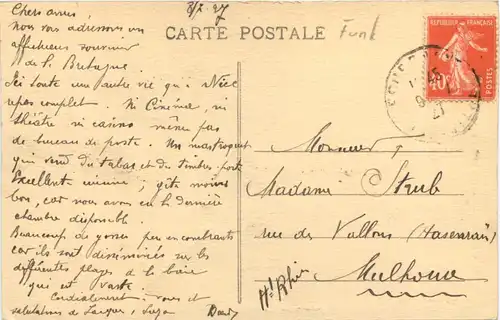 8/7 27
CARTE POSTALE
Funk
REPUBLIQUE FRANÇAISE
40c
POSTES
Chers amis,
Nous vous adressons un
affectueux souvenir
de la Bretagne
Ici toute une autre vie qu'à Nice
repos complet. Ni Cinéma, ni
théâtre ni casino même pas
de bureau de poste. Un mastroquet
qui vend du tabac et des timbres poste
Excellente cuisine, gîte moins
bon, car nous avons eu la dernière
chambre disponible.
Beaucoup de gosses peu encombrants
car ils sont disséminés sur les
différentes plages de la baie
qui est vaste.
Cordialement vous et
salutations de
Monsieur,
Madame Strub
rue des Vallons (Hasenrain)
Mulhouse
Ht Rhin